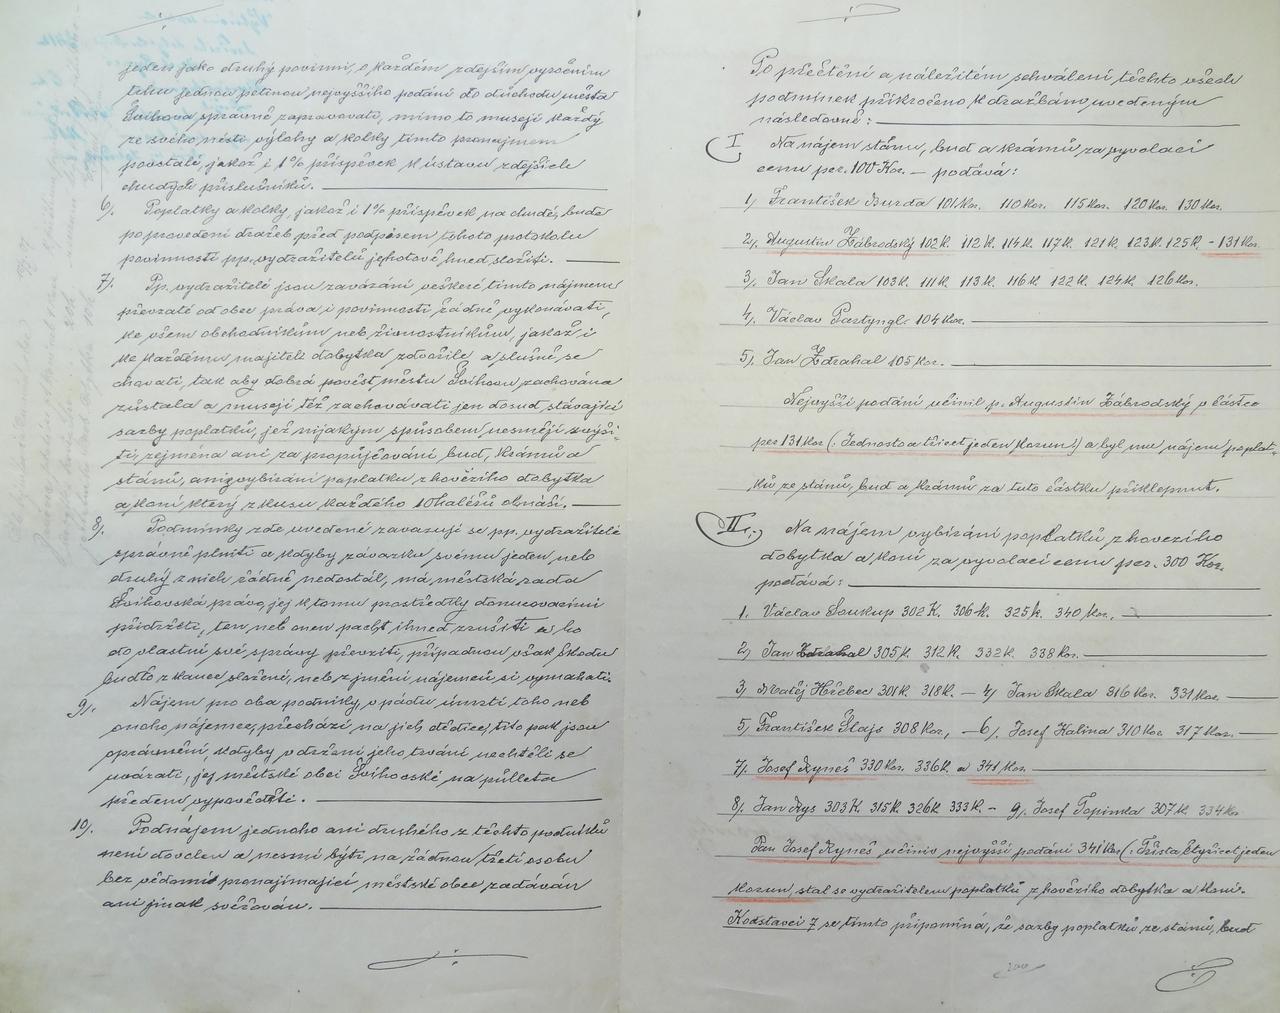 jeden jako druhý povinni, o každém zdejším výročním
trhu jednou pětinou nejvyššího podání do důchodu města
Švihova správně zapravovati, mimo to musejí každý
ze svého nésti výlohy a kolky tímto pronájmem
povstalé, jakož i 1% příspěvek k ústavu zdejších
chudých příslušníků.
6). Poplatky a kolky, jakož i 1% příspěvek na chudé, bude
po provedení dražeb před podpisem tohoto protokolu
povinností pp. vydražitelů jehotově hned složiti.
7). Pp. vydražitelé jsou zavázáni veškeré tímto nájmem
převzaté od obce práva i povinnosti řádně vykonávati,
ke všem obchodníkům neb živnostníkům, jakož i
ke každému majiteli dobytka zdvořile a slušně se
chovati, tak aby dobrá pověst městu Švihovu zachována
zůstala a musejí též zachovávati jen dosud stávající
sazby poplatků, jež nijakým způsobem nesmějí zvýši-
ti, zejména ani za propůjčování bud, krámů a
stánů, ani vybírání poplatků z hovězího dobytka
a koní který z kusu každého 10 haléřů obnáší.
8). Podmínky zde uvedené zavazují se pp. vydražitelé
správně plniti a kdyby závazku svému jeden neb
druhý z nich řádně nedostál, má městská rada
Švihovská právo, jej k tomu prostředky donucovacími
přidržeti, ten neb onen pacht ihned zrušiti a ho
do vlastní své správy převzíti, případnou však škodu
buďto z kauce složené, neb z jmění nájemců si vymahati.
9). Nájem pro oba podniky, v pádu úmrtí toho neb
onoho nájemce, přechází na jich dědice, tito pak jsou
oprávněni, kdyby v držení jeho trvání nechtěli se
uvázati, jej městské obci Švihovské na půl leta
předem vypověděti.
10). Podnájem jednoho ani druhého z těchto podniků
není dovolen a nesmí býti na žádnou třetí osobu
bez vědomí pronajímající městské obce zadáván
ani jinak svěřován.
Po přečtění a náležitém schválení těchto všech
podmínek přikročeno k dražbám uvedeným
následovně:
I Na nájem stánů, bud a krámů za vyvolací
cenu per. 100 Kor. — podává:
1) František Burda 101 Kor. 110 Kor. 115 Kor. 120 Kor. 130 Kor.
2). Augustin Zábrodský 102 K. 112 K. 114 K. 117 K. 121 K. 123 K. 125 K. - 131 Kor.
3). Jan Skala 103 K. 111 K. 113 K. 116 K. 122 K. 124 K. 126 Kor.
4). Václav Partyngl 104 Kor.
5). Jan Zdrahal 105 Kor.
Nejvyšší podání učinil p. Augustin Zábrodský v částce
per 131 Kor (: Jednosto a třicet jeden Korun:) a byl mu nájem poplat-
ků ze stánů, bud a krámů za tuto částku příklepnut.
II. Na nájem vybírání poplatků z hovězího
dobytka a koní za vyvolací cenu per. 300 Kor.
podává:
1. Václav Soukup 302 K. 306 K. 325 K. 340 Kor.
2) Jan Zdrahal 305 K. 312 K. 332 K. 338 Kor.
3) Matěj Hřebec 301 K. 318 K. — 4) Jan Skala 316 Kor. 331 Kor.
5) František Šlajs 308 Kor, — 6). Josef Kalina 310 Kor. 317 Kor.
7). Josef Ryneš 330 Kor. 336 K. a 341 Kor.
8). Jan Rys 303 K. 315 K. 326 K. 333 K. — 9). Josef Topinka 307 K. 334 Kor
Pan Josef Ryneš učiniv nejvyšší podání 341 Kor (: Třista čtyřicet jeden
korun, stal se vydražitelem poplatků z hovězího dobytka a koní.
K odstavci 7 se tímto připomíná, že sazby poplatků ze stánů, bud